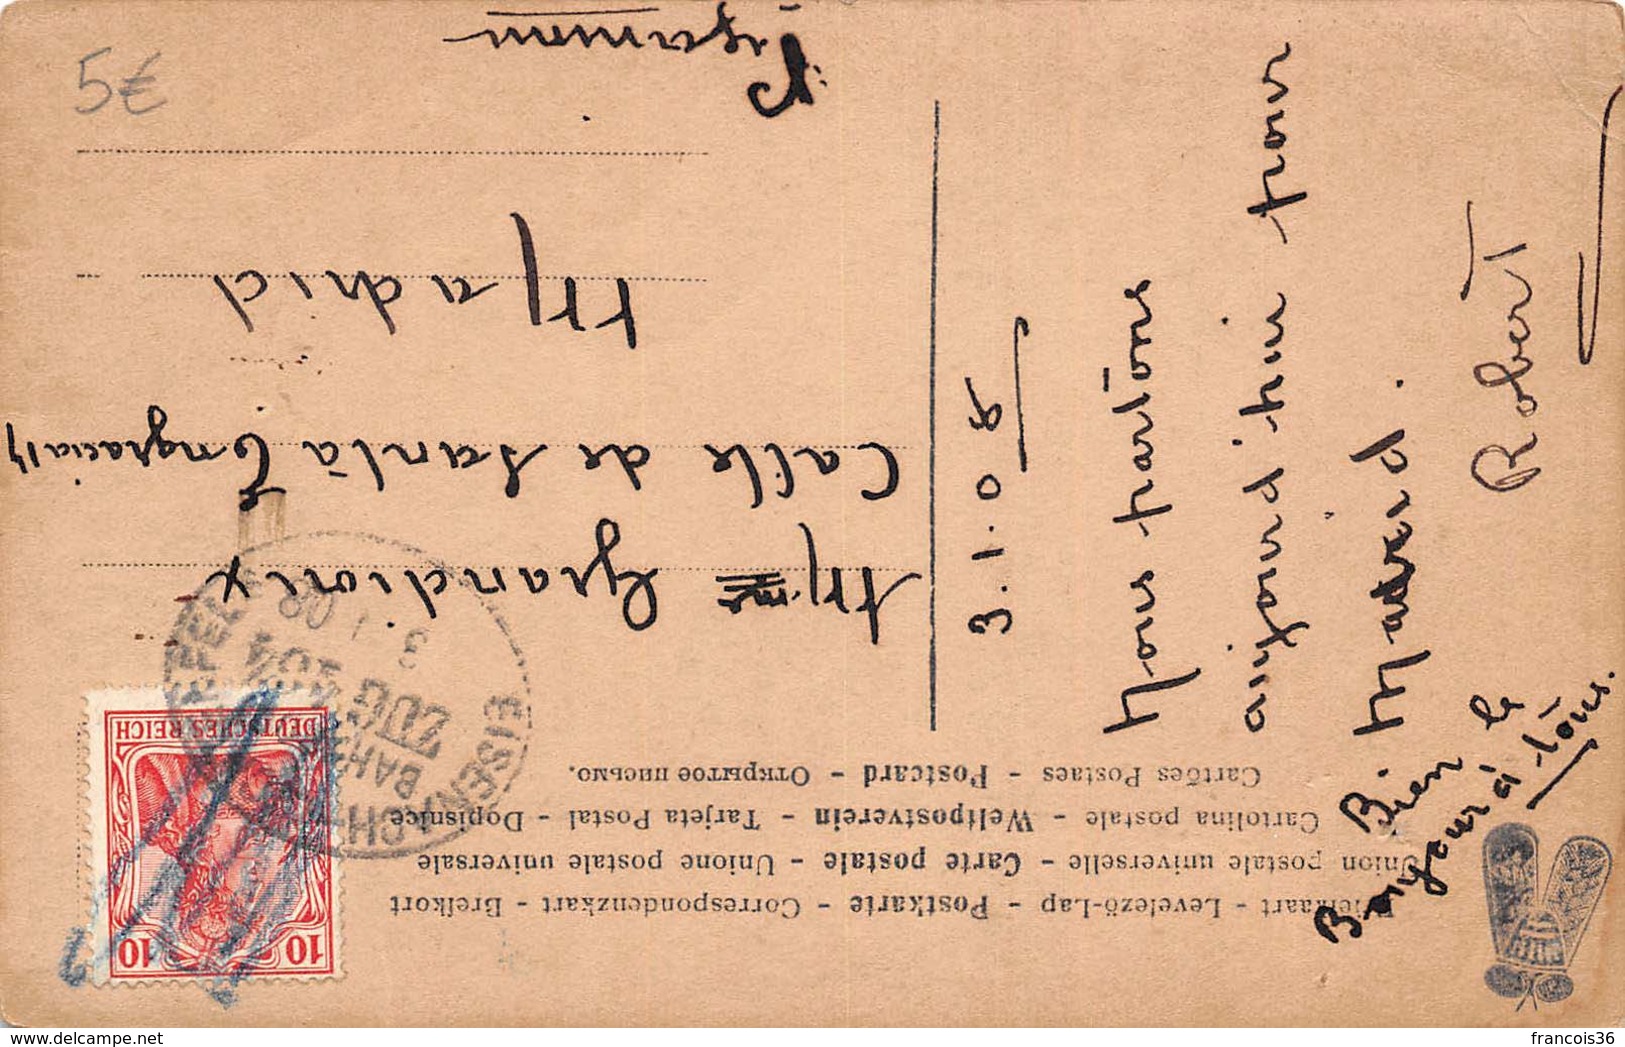 Briefkaart - Levelező-Lap - Postkarte - Correspondenzkart - Brefkort
Union postale universelle - Carte postale - Unione postale universale
Cartolina postale - Weltpostverein - Tarjeta Postal - Dopisnice
Cartões Postaes - Postcard - Открытое письмо.
DEUTSCHES REICH
10 10
BAHNPOST
ZUG 104
3 1 08
EISENACH
Mme Grandioux
Calle de Santa Engracia 17
Madrid
Espagne
3.1.08
Nous partons
aujourd'hui pour
Madrid.
Robert
Bien le
Bonjour à
tous.
5€
delcampe.net
francois36